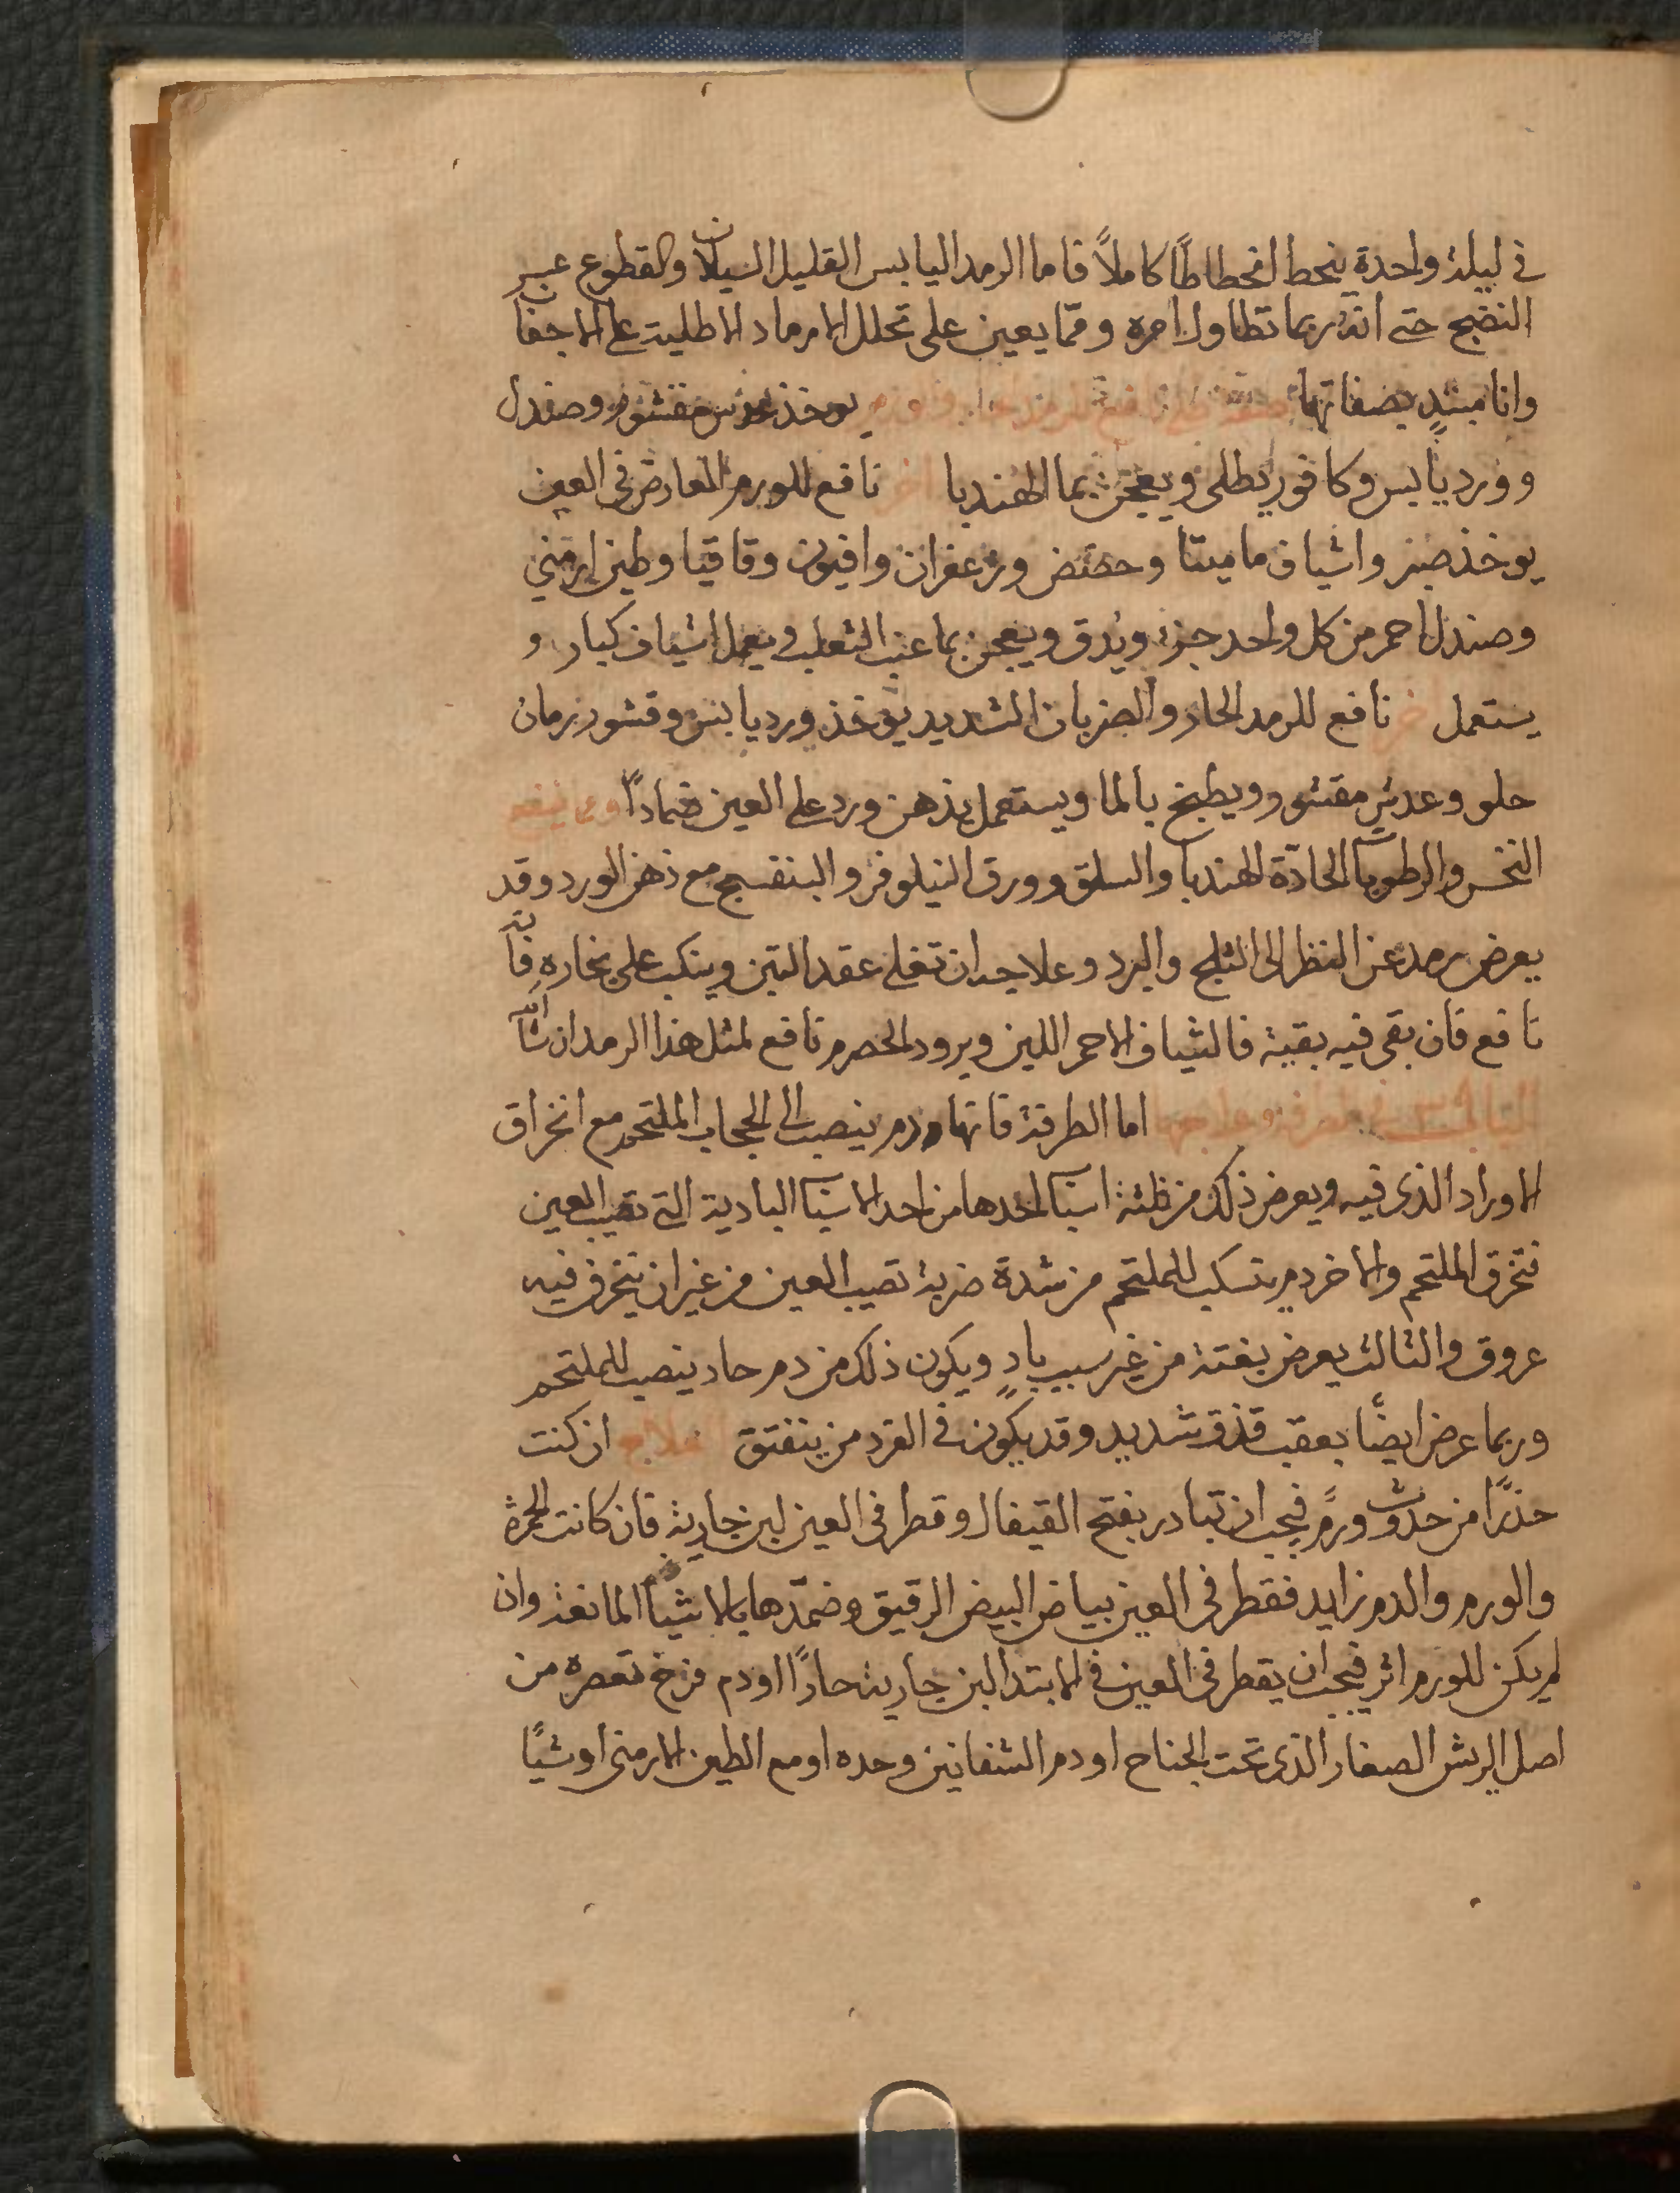 في ليلة واحدة ينحط انحطاطًا كاملاً فاما الرمد اليابس القليل السيلان والقطوع عسر
النضج حتى انه ربما تطاول امره وممّا يعين على تحلل الارماد الاطلية على الاجفان
وانا مبتدٍ بصفاتها يوخذ عدس مقشور وصندل
وورد يابس وكافور يطلى ويعجن بما الهندبا اخر نافع للورم العارض في العين
يوخذ صبر واشياف ماميثا وحضض وزعفران وافيون وقاقيا وطين ارمني
وصندل احمر من كل واحد جزء ويدق ويعجن بما عنب الثعلب ويعمل اشياف كبار و
يستعمل اخر نافع للرمد الحار والضربان الشديد يوخذ ورد يابس وقشور رمان
حلو وعدس مقشور ويطبخ بالما ويستعمل بدهن ورد على العين ضمادًا ومما ينفع
النخس والرطوبات الحادّة الهندبا والسلق وورق النيلوفر والبنفسج مع دهن الورد وقد
يعرض رمد عن النظر الى الثلج والبرد وعلاجه ان تغلى عقد التين وينكب على بخاره فانه
نافع فان بقى فيه بقية فالشياف الاحمر اللين وبرود الحصرم نافع لمثل هذا الرمد ان شا الله
اما الطرفة فانها دم ينصب الى الحجاب الملتحم مع انخراق
الاوراد الذى فيه ويعرض ذلك من ثلثة اسباب احدها من احد الاسباب البادية التى تصيب العين
فتخرق الملتحم والاخر دم يتسكب للملتحم من شدة ضربة تصيب العين من غير ان ينخرق فيه
عروق والثالث يعرض بغتة من غير سبب بادٍ ويكون ذلك من دم حاد ينصب للملتحم
وربما عرض ايضًا بعقب قذف شديد وقد يكون في الفرد من ينفتق العلاج ان كنت
حذرًا من حدوث ورمٍ فيجب ان تبادر بفتح القيفال وقطر في العين لبن جارية فان كانت الحمرة
والورم والدم زايد فقطر في العين بياض البيض الرقيق وضمّدها بالاشيا المانعة وان
لم يكن للورم اثر فيجب ان يقطر في العين في الابتدا لبن جارية حارًا او دم فرخ تعصره من
اصل الريش الصغار الذى تحت الجناح او دم الشفانين وحده او مع الطين الارمنى او شيًا